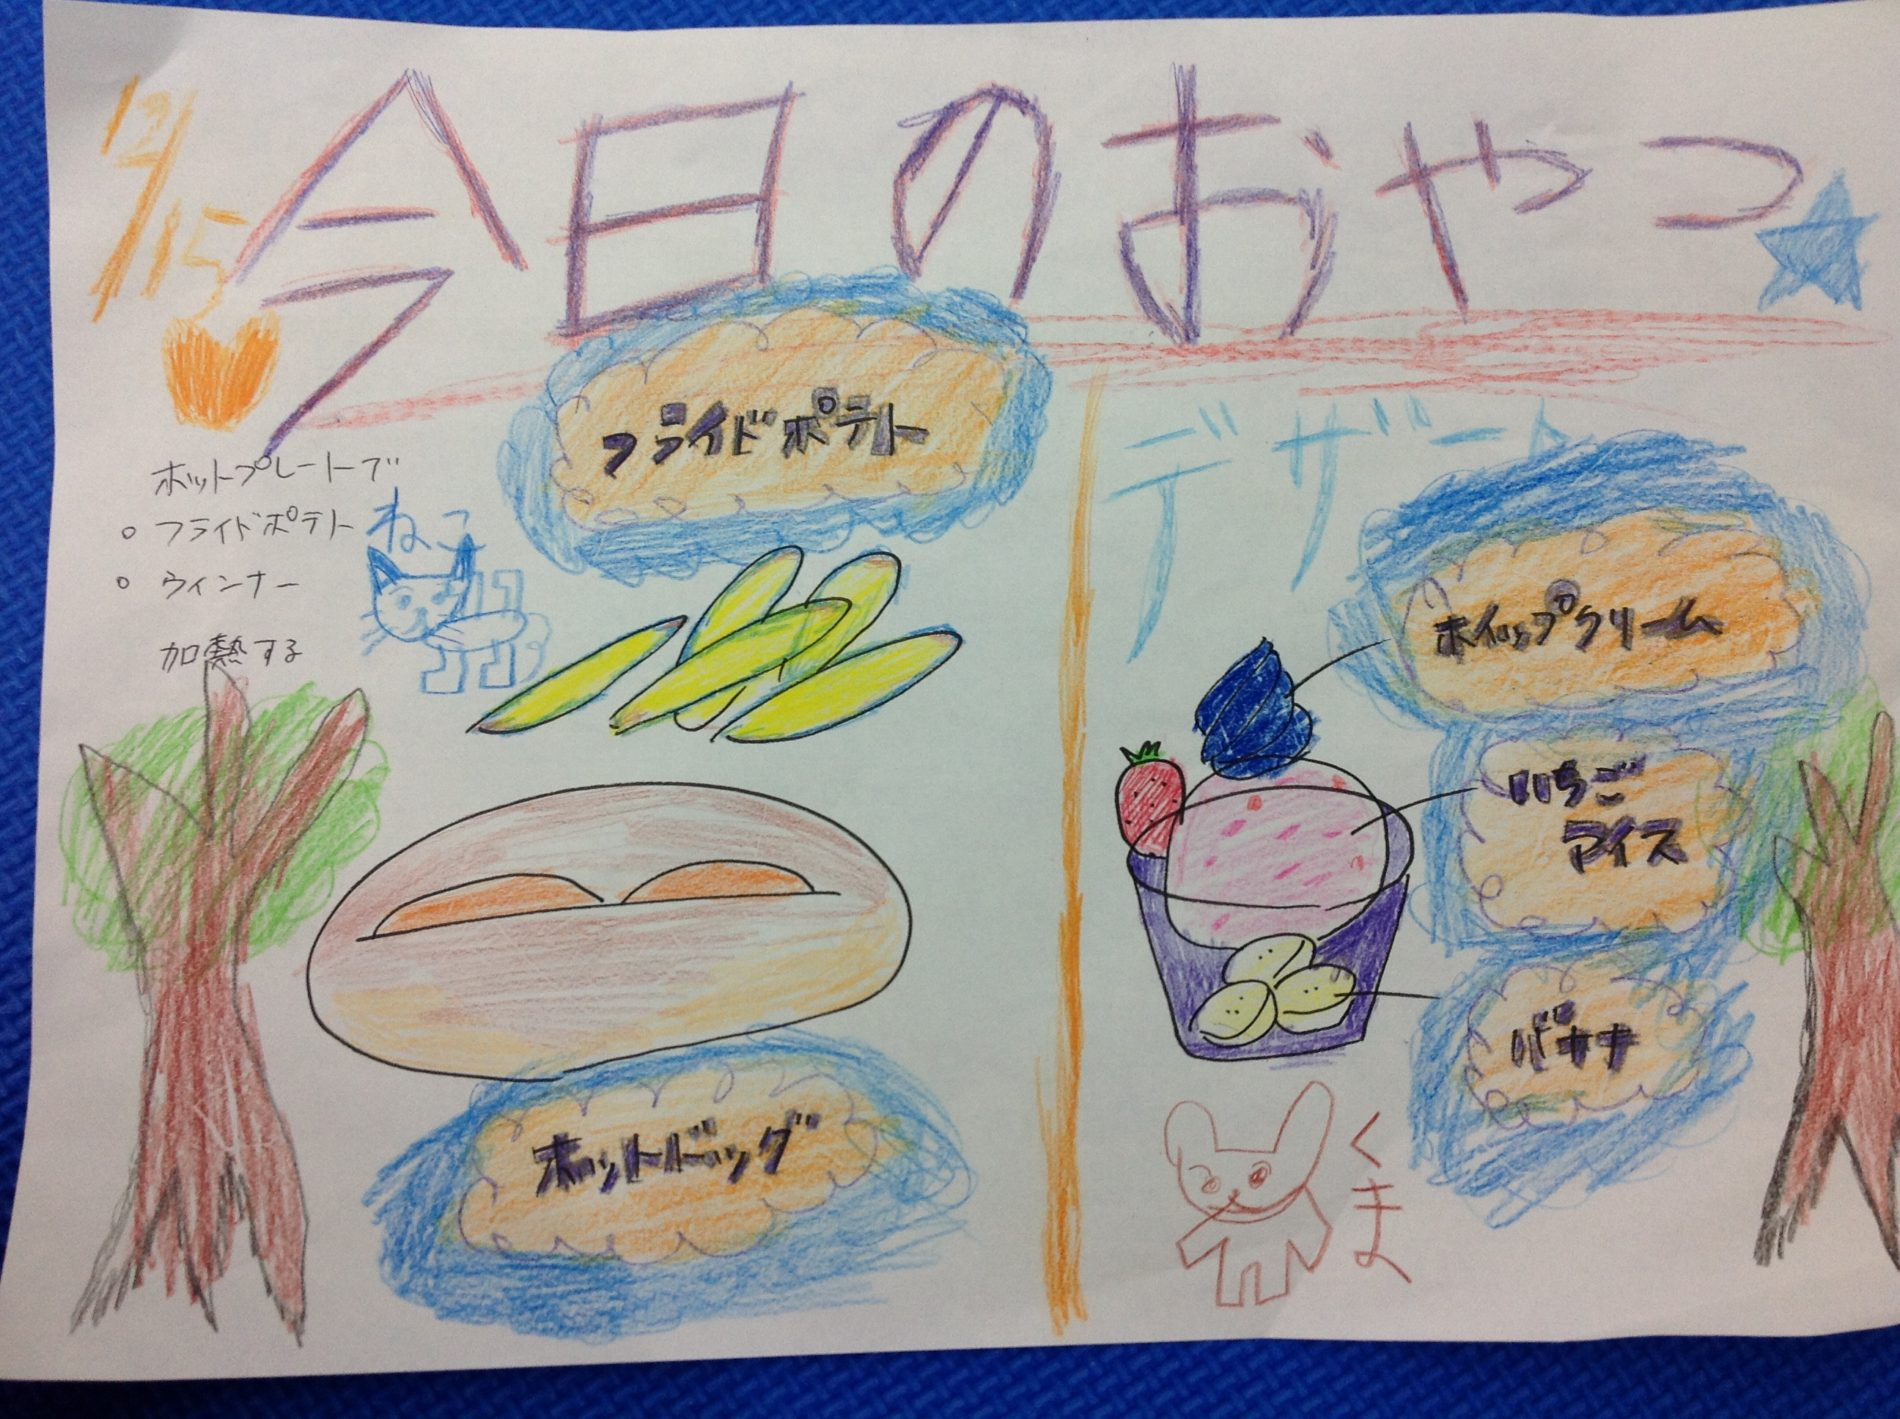 12/15
今日のおやつ
フライドポテト
ホットプレートで
。フライドポテト
。ウィンナー
加熱する
ねこ
ホットドッグ
デザート
ホイップクリーム
いちご
アイス
バナナ
くま